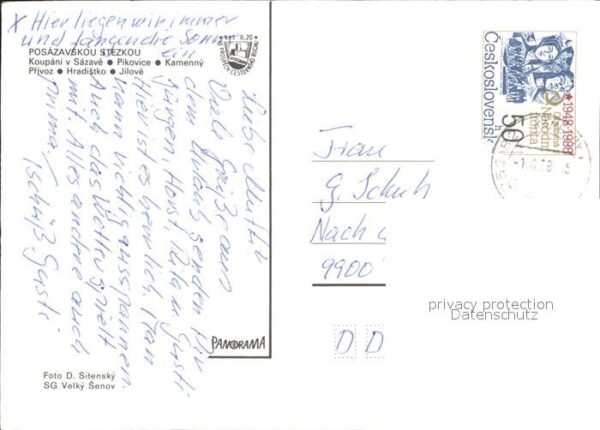 x Hier liegen wir immer
und fangen die Sonne
ein
POSÁZAVSKOU STEZKOU
Koupání v Sázavě • Pikovice • Kamenný
Přívoz • Hradištko • Jílové
Kčs 0,20
Liebe Mutti!
Viele Grüße aus
dem Urlaub senden Dir
Jürgen, Horst, Gusti
Hier ist es herrlich. Man
kann richtig ausspannen.
Auch das Wetter spielt
mit. Alles andere auch
prima!
Tschüß Gusti
PANORAMA
Foto D. Sitenský
SG Velký Šenov
Československo
50
★ 1948-1988
Národní
fronta
Frau
G. Schuh
Nach
9900
D D
privacy protection
Datenschutz